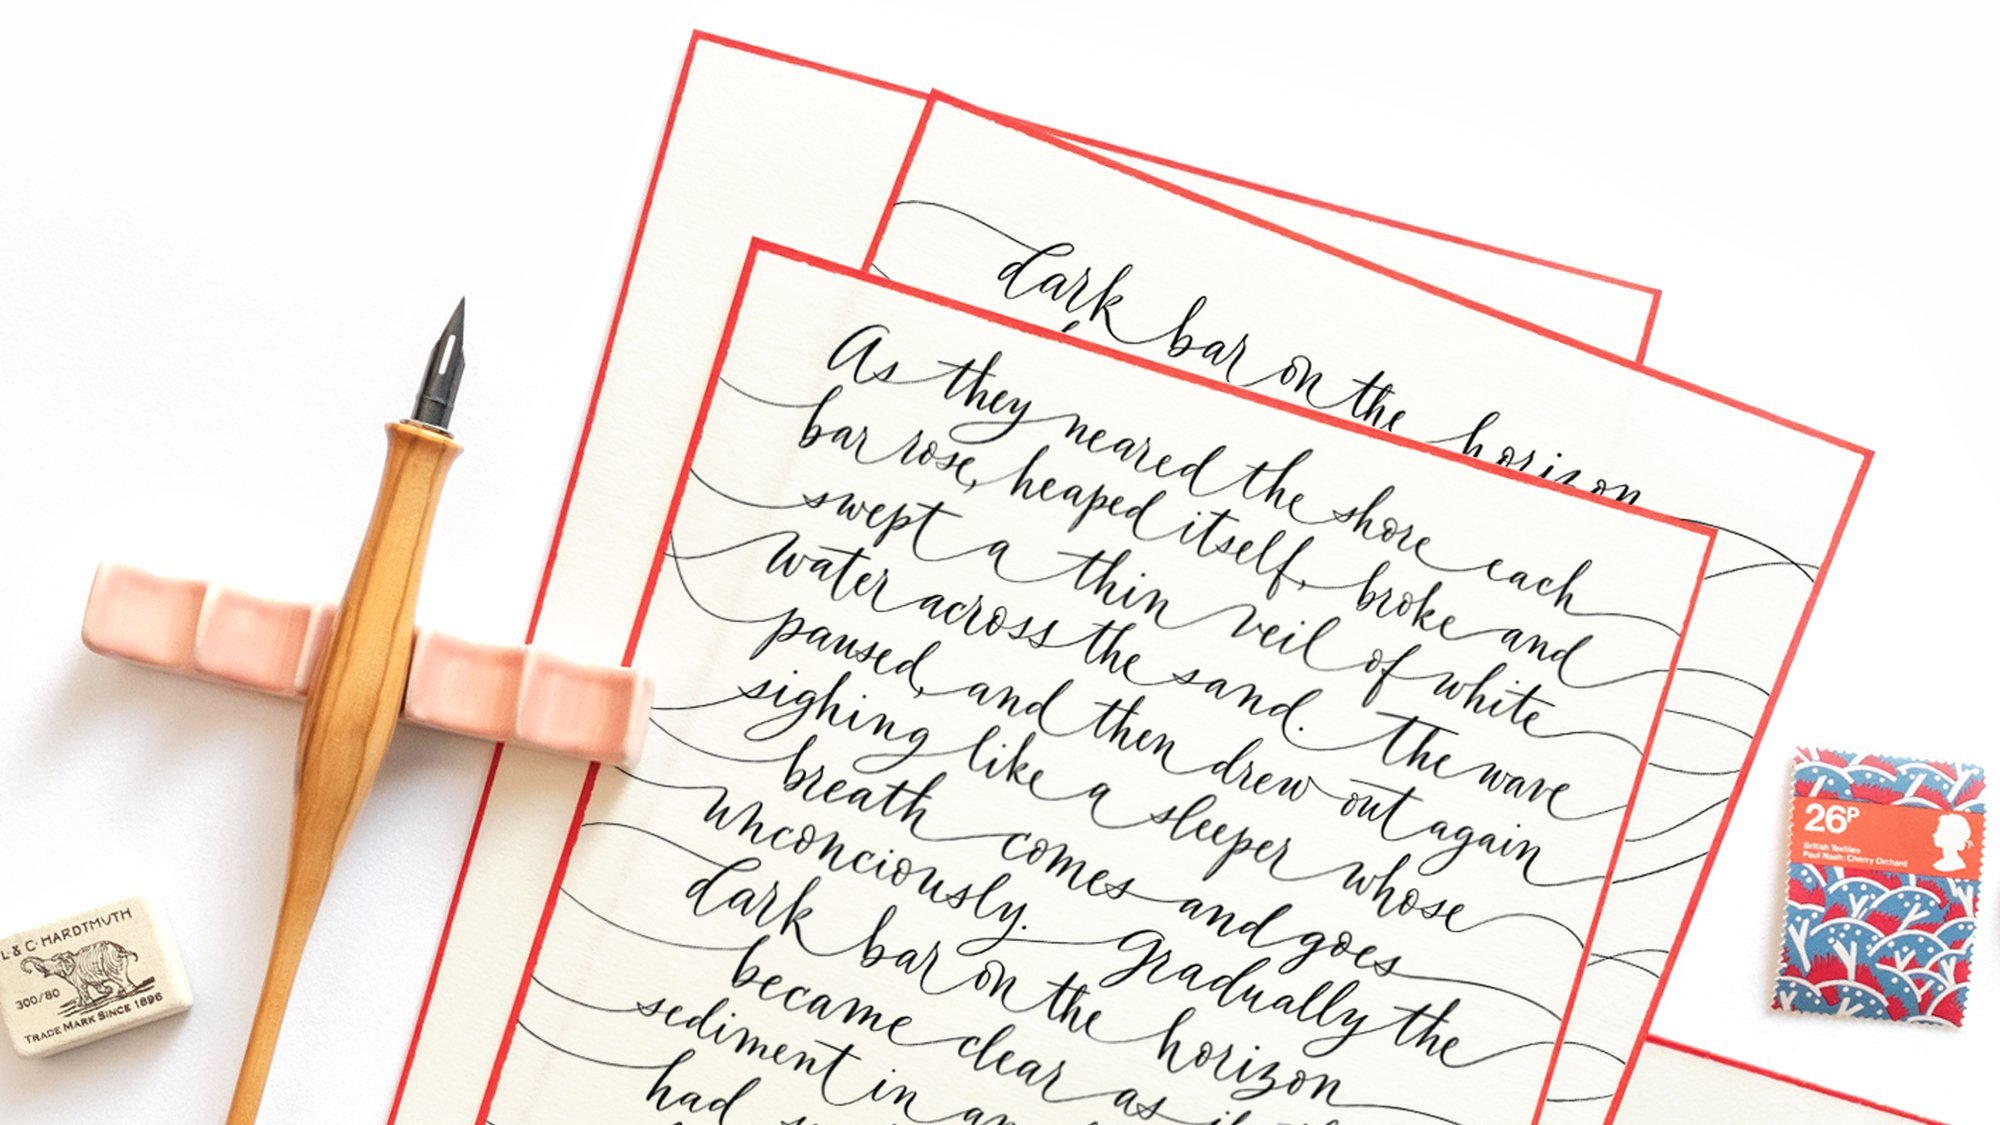 dark bar on the horizon
As they neared the shore each
bar rose, heaped itself, broke and
swept a thin veil of white
water across the sand. The wave
paused, and then drew out again
sighing like a sleeper whose
breath comes and goes
unconciously. Gradually the
dark bar on the horizon
became clear as if the
sediment in an
had
L & C·HARDTMUTH
300/80
TRADE MARK SINCE 1896
26P
British Textiles
Paul Nash: Cherry Orchard